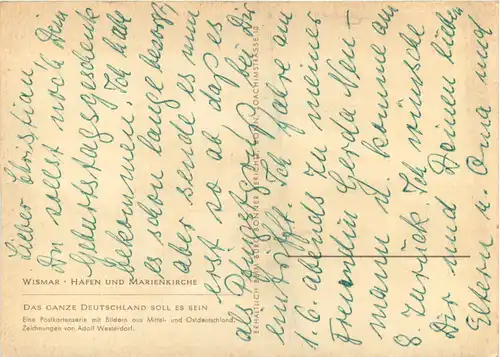 Lieber Christian!
Du sollst noch Dein
Geburtstagsgeschenk
bekommen. Ich habe
es schon lange besorgt
aber sende es nun
erst so ab daß es
als Pfingstgruß bei Dir
eintrifft. Ich fahre am
1.6. abends zu meiner
Freundin Gerda Neu-
mann u. komme am
8. zurück. Ich wünsche
Dir und Deinen lieben
Eltern u. Oma und
WISMAR · HAFEN UND MARIENKIRCHE
DAS GANZE DEUTSCHLAND SOLL ES SEIN
Eine Postkartenserie mit Bildern aus Mittel- und Ostdeutschland.
Zeichnungen von Adolf Westerdorf.
ERHÄLTLICH BEIM BERLIN-BONNER BERICHT, BONN, JOACHIMSTRASSE 10